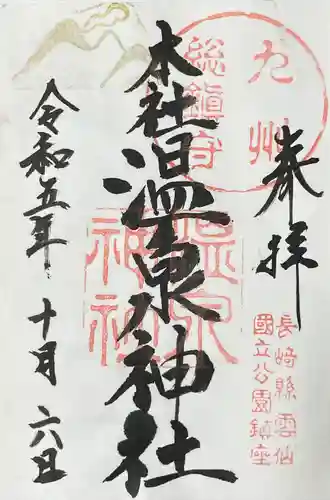 奉拝
九州
総鎮守
長﨑縣雲仙
國立公園鎮座
本社温泉神社
温泉
神社
令和五年十月六日